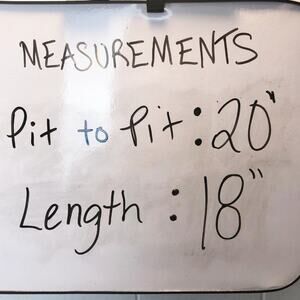 MEASUREMENTS
Pit to Pit : 20"
Length : 18"